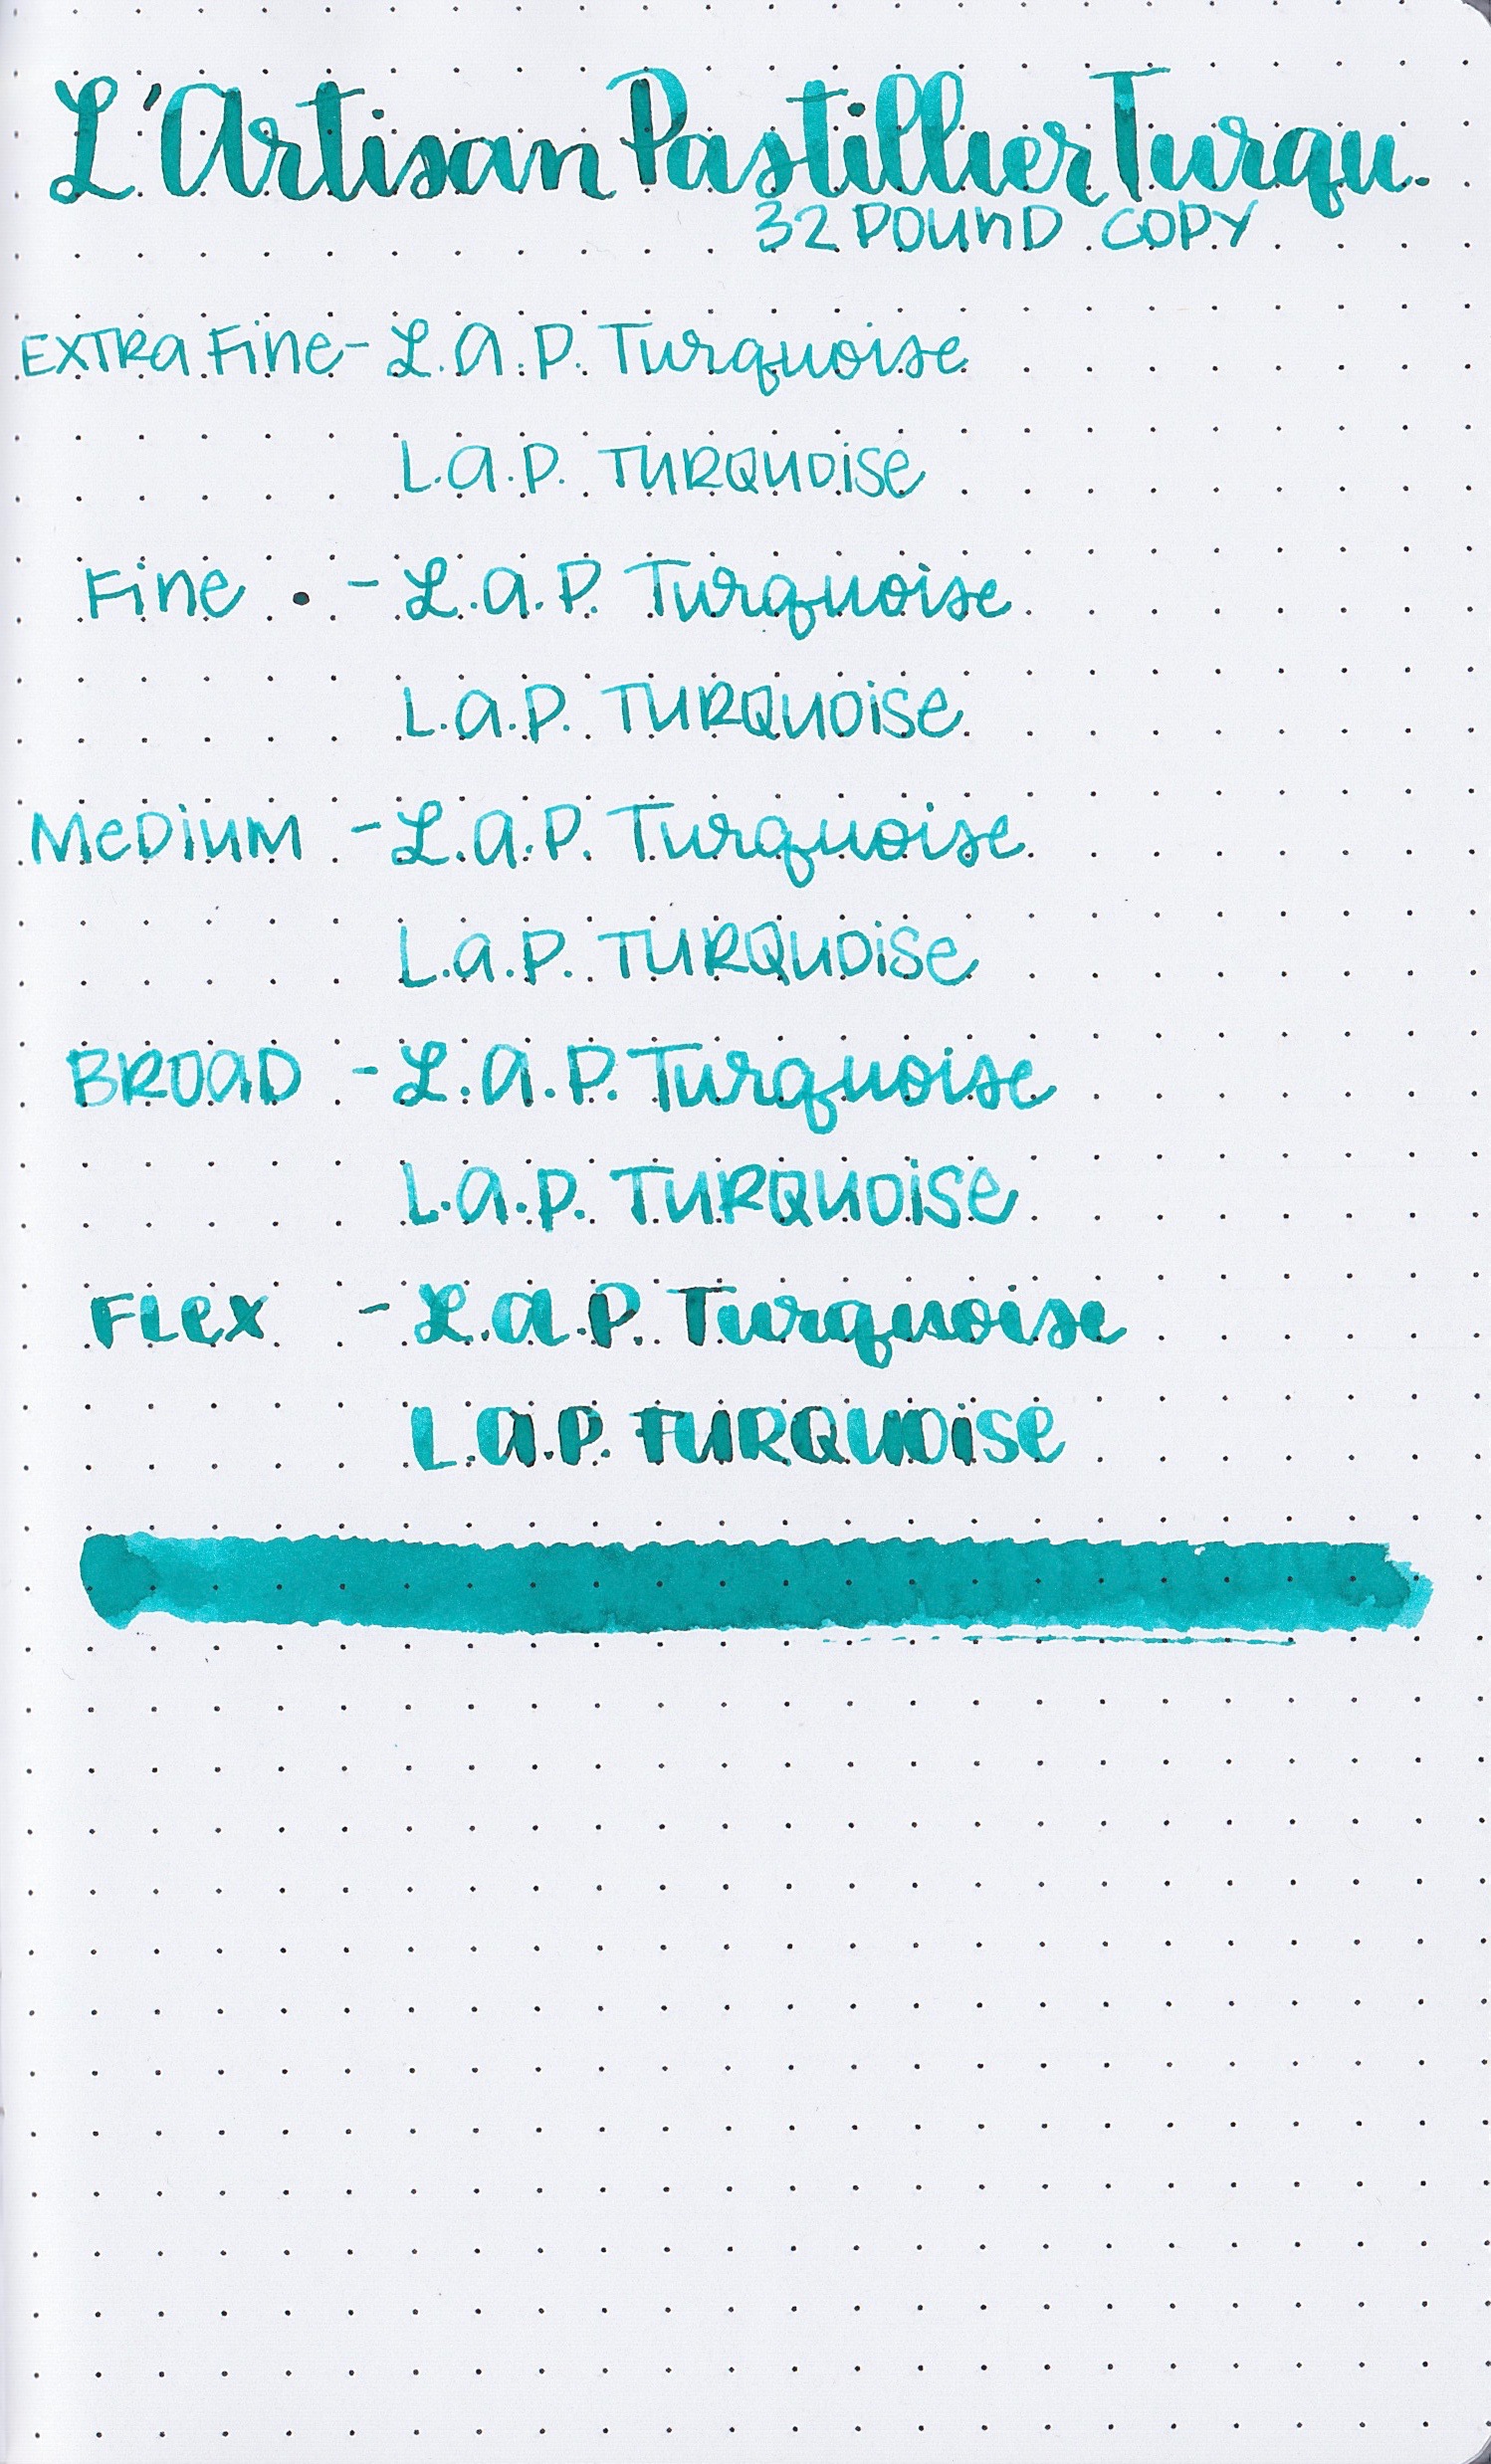 L'Artisan Pastillier Turqu.
32 POUND COPY
EXTRA FINE - L.A.P. Turquoise
L.A.P. TURQUOISE
FINE - L.A.P. Turquoise
L.A.P. TURQUOISE
MEDIUM - L.A.P. Turquoise
L.A.P. TURQUOISE
BROAD - L.A.P. Turquoise
L.A.P. TURQUOISE
FLEX - L.A.P. Turquoise
L.A.P. TURQUOISE